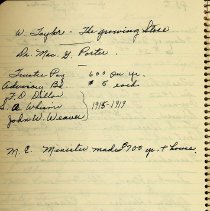 W. Taylor - The growing Store
Dr. Mac. G. Porter.
Trustee Pay 600 on yr.
Advisory Bd $5 each
F. D. Dillon
S. A. Wherin 1915-1919
John W. Weaver
M. E. Minister made $700 yr. + house.